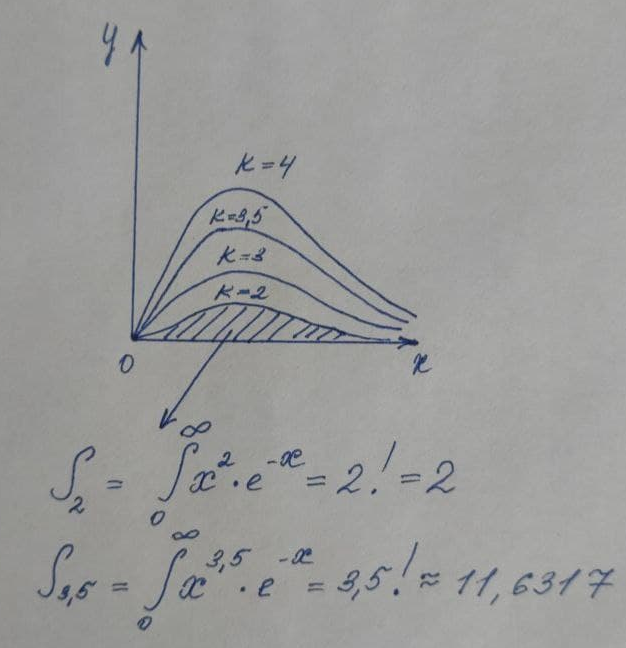 y
K=4
K=3,5
K=3
K=2
0
x
S₂ = ∫₀^∞ x² · e^-x = 2! = 2
S₃,₅ = ∫₀^∞ x^3,5 · e^-x = 3,5! ≈ 11,6317